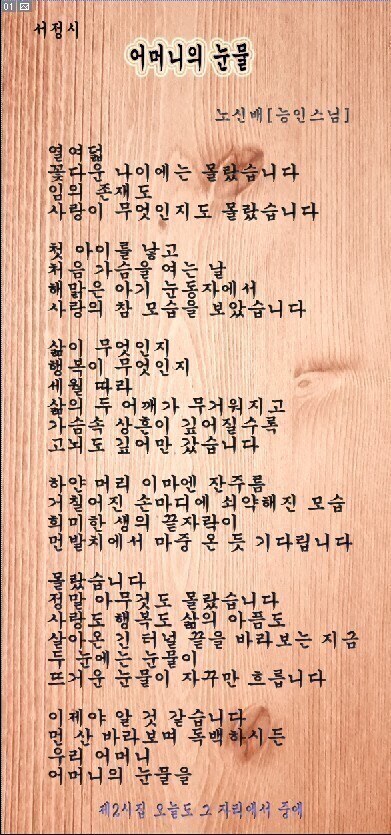 01
서정시
어머니의 눈물
노신배[능인스님]
열여덟
꽃다운 나이에는 몰랐습니다
임의 존재도
사랑이 무엇인지도 몰랐습니다
첫 아이를 낳고
처음 가슴을 여는 날
해맑은 아기 눈동자에서
사랑의 참 모습을 보았습니다
삶이 무엇인지
행복이 무엇인지
세월 따라
삶의 두 어깨가 무거워지고
가슴속 상흔이 깊어질수록
고뇌도 깊어만 갔습니다
하얀 머리 이마엔 잔주름
거칠어진 손마디에 쇠약해진 모습
희미한 생의 끝자락이
먼발치에서 마중 온 듯 기다립니다
몰랐습니다
정말 아무것도 몰랐습니다
사랑도 행복도 삶의 아픔도
살아온 긴 터널 끝을 바라보는 지금
두 눈에는 눈물이
뜨거운 눈물이 자꾸만 흐릅니다
이제야 알 것 같습니다
먼 산 바라보며 독백하시든
우리 어머니
어머니의 눈물을
제2시집 오늘도 그 자리에서 중에